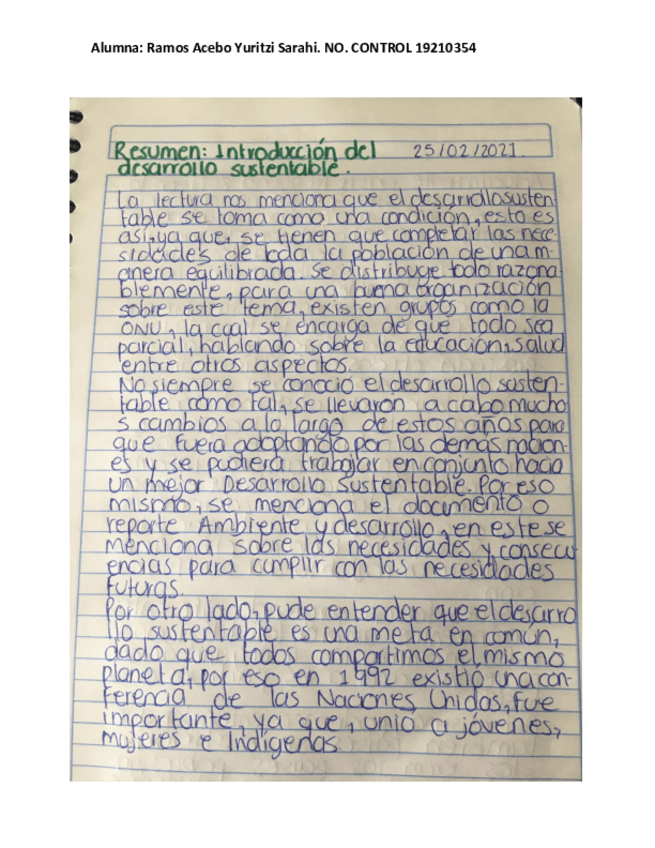 Alumna: Ramos Acebo Yuritzi Sarahi. NO. CONTROL 19210354
Resumen: Introducción del 25/02/2021
desarrollo sustentable.
La lectura nos menciona que el desarrollo susten-
table se toma como una condición, esto es
así, ya que, se tienen que completar las nece-
sidades de toda la población de una m-
anera equilibrada. Se distribuye todo razona-
blemente, para una buena organización
sobre este tema, existen grupos como la
ONU, la cual se encarga de que todo sea
parcial, hablando sobre la educación, salud
entre otros aspectos.
No siempre se conoció el desarrollo susten-
table como tal, se llevaron a cabo mucho
s cambios a lo largo de estos años para
que fuera adoptando por las demás nacion-
es y se pudiera trabajar en conjunto hacia
un mejor Desarrollo Sustentable. Por eso
mismo, se menciona el documento o
reporte Ambiente y desarrollo, en este se
menciona sobre las necesidades y consecu
encias para cumplir con las necesidades
futuras.
Por otro lado, pude entender que el desarro
llo sustentable es una meta en común,
dado que todos compartimos el mismo
planeta, por eso en 1992 existió una con-
ferencia de las Naciones Unidas, fue
importante, ya que, unió a jóvenes,
mujeres e Indígenas.